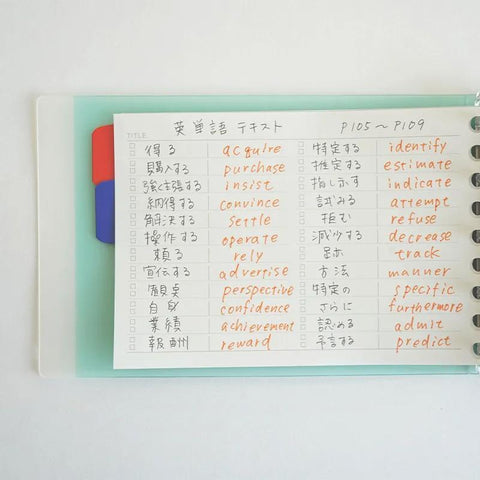 TITLE 英単語 テキスト P105〜P109
得る acquire
購入する purchase
強く主張する insist
納得する convince
解決する settle
操作する operate
頼る rely
宣伝する advertise
観点 perspective
自身 confidence
業績 achievement
報酬 reward
特定する identify
推定する estimate
指し示す indicate
試みる attempt
拒む refuse
減少する decrease
跡 track
方法 manner
特定の specific
さらに furthermore
認める admit
予言する predict